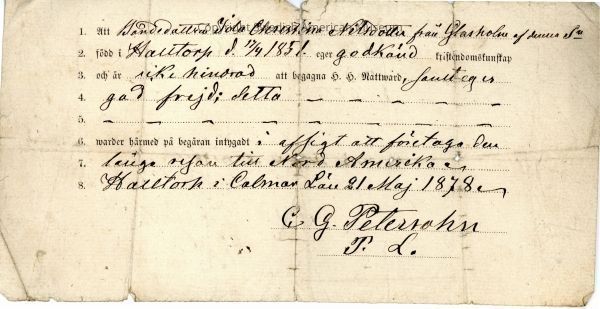 1. Att Bondedottren Ida Christina Nilsdotter från Glasholm af denna Sn
2. född i Halltorp d. 17/4 1851. eger godkänd kristendomskunskap
3. och är icke hindrad att begagna H. H. Nattward, samt eger
4. god frejd; detta — — — — — —
5. — — — — — — — — — —
6. warder härmed på begäran intygadt i afsigt att företaga den
7. långa resan till Nord Amerika.
8. Halltorp i Calmar Län 21 Maj 1878.
C G. Petersohn
P. L.